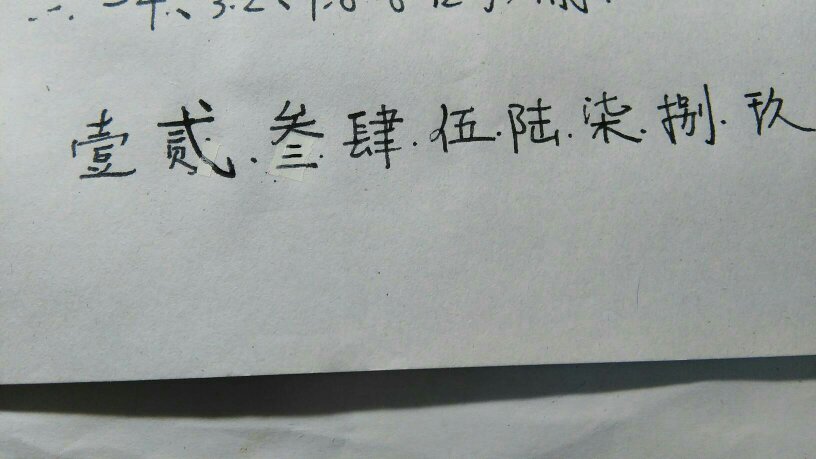 壹贰.叁.肆.伍.陆.柒.捌.玖